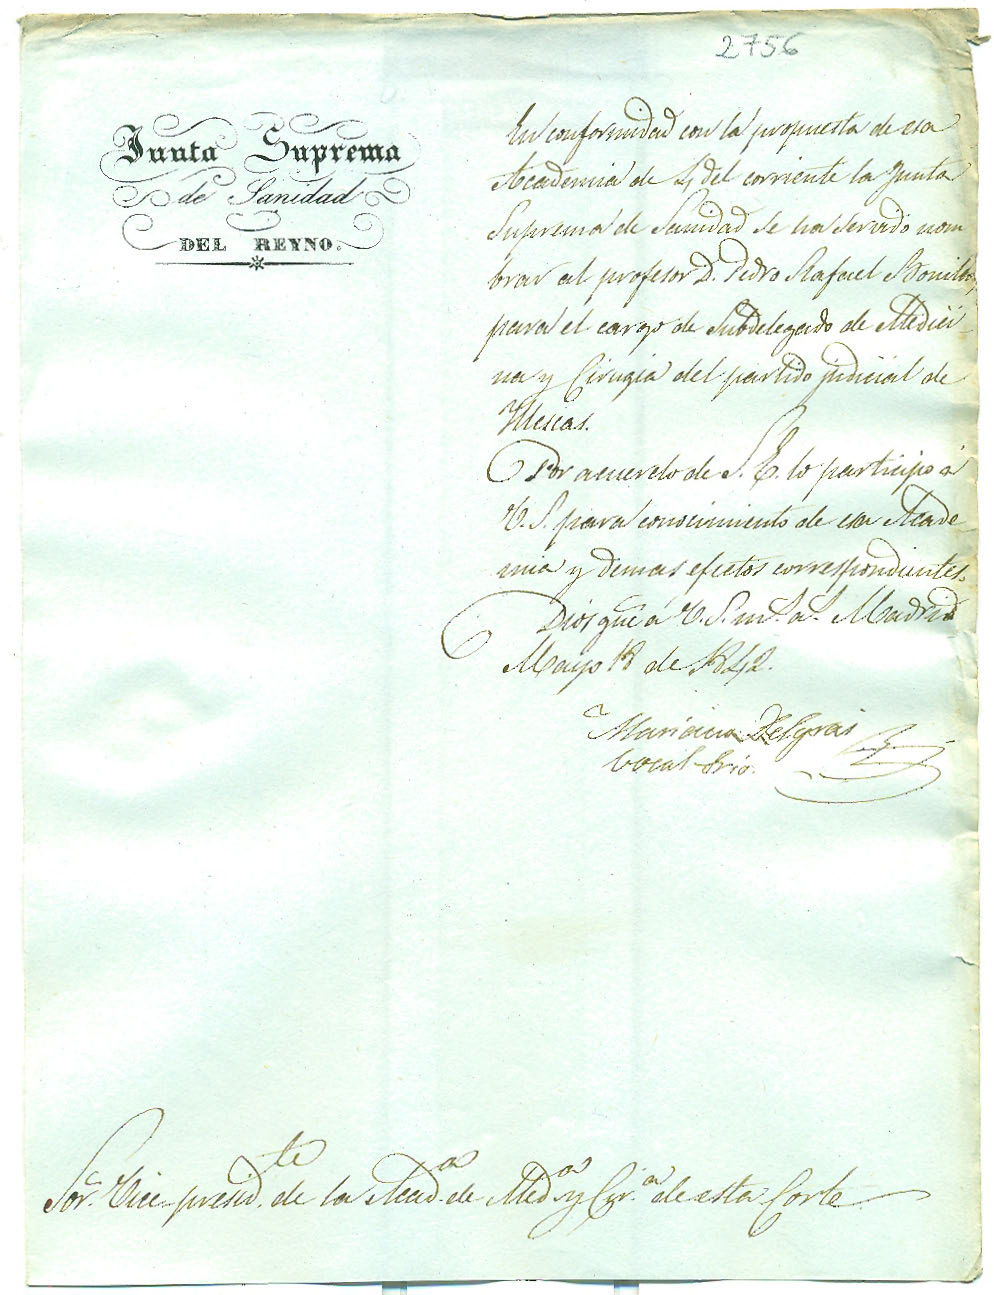 2756
Junta Suprema
de Sanidad
DEL REYNO.
En conformidad con la propuesta de esa
Academia de 4 del corriente la Junta
Suprema de Sanidad se ha servido nom
brar al profesor D. Pedro Rafael Bonilla,
para el cargo de Subdelegado de Medici
na y Cirugia del partido judicial de
Illescas.
Por acuerdo de S. E. lo participo á
V. S. para conocimiento de esa Acade
mia y demas efectos correspondientes.
Dios gue á V. S. ms. as. Madrid
Mayo 18 de 1842.
Mariano Delgrás
Vocal Srio.
Sor. Vice-presidte. de la Acada. de Meda. y Cira. de esta Corte